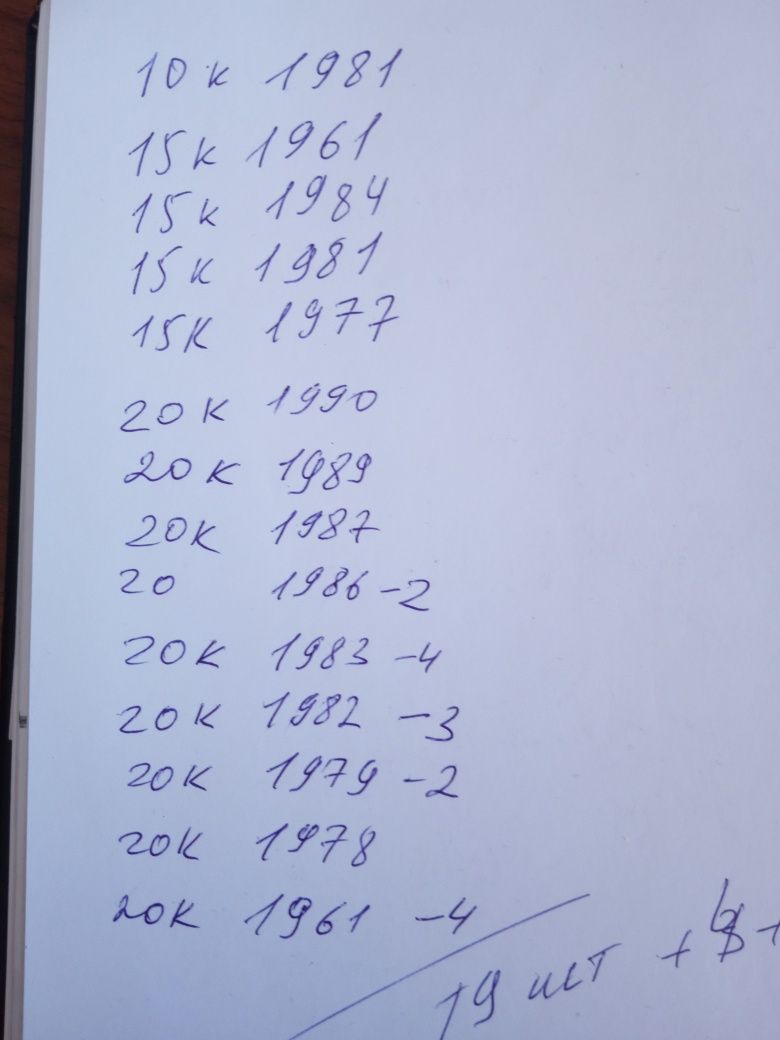 10 к 1981
15к 1961
15к 1984
15к 1981
15к 1977
20к 1990
20к 1989
20к 1987
20 1986 -2
20к 1983 -4
20к 1982 -3
20к 1979 -2
20к 1978
20к 1961 -4
19 шт +